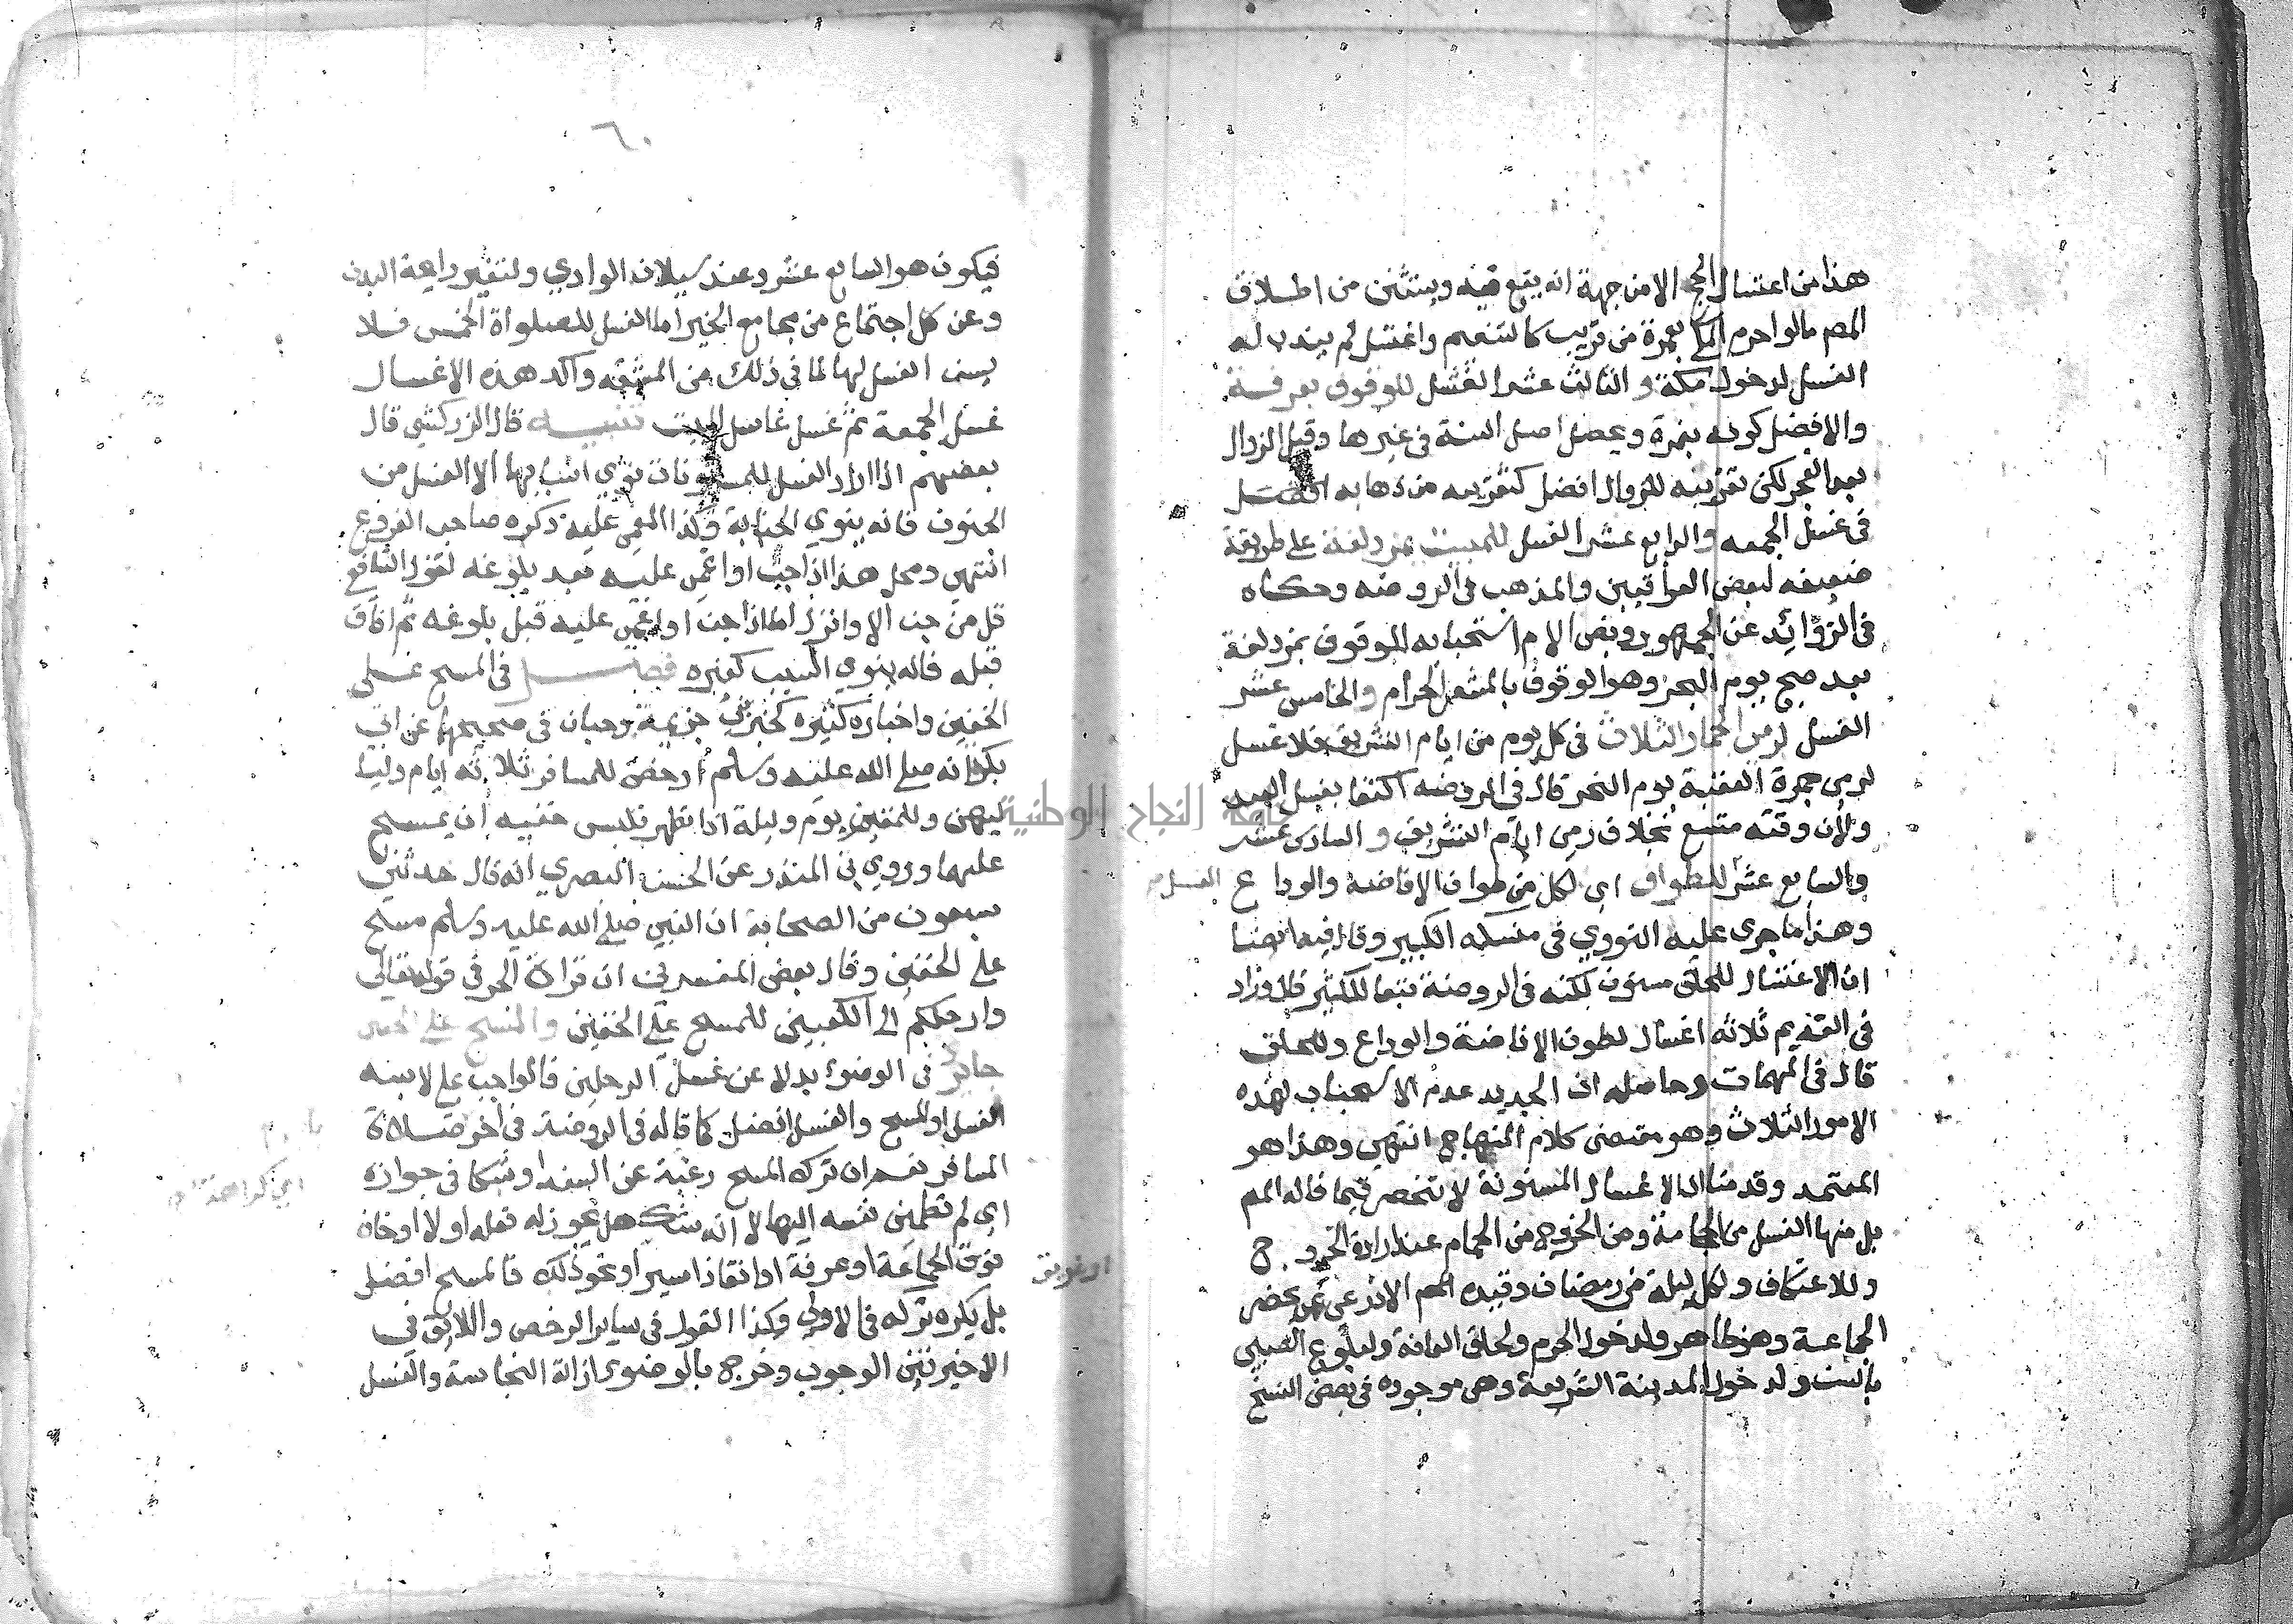 هذا من اغتسال الحج الا من جهة انه يقع فيه ويستثنى من اطلاق
المص ما لو احرم المكي بعمرة من قريب كالتنعيم واغتسل لم يندب له
الغسل لدخول مكة و الثالث عشر الغسل للوقوف بعرفة
والافضل كونه بنمرة ويحصل اصل السنة في غيرها وقبل الزوال
بعد الفجر لكن تقريبه للزوال افضل كتقريبه من ذهابه افضل
في غسل الجمعه والرابع عشر الغسل للمبيت بمزدلفة على طريقة
ضعيفه لبعض العراقيين والمذهب في الروضه وحكاه
في الزوائد عن الجمهور ونص الام استحبابه للوقوف بمزدلفة
بعد صبح يوم النحر وهو الوقوف بالمشعر الحرام والخامس عشر
الغسل لرمي الجمار الثلاث في كل يوم من ايام التشريق فلا غسل
لرمي جمرة العقبة يوم النحر قال في الروضه اكتفا بغسل العيد
ولأن وقته متسع بخلاف رمي ايام التشريق و السادس عشر
والسابع عشر للطواف اي لكل من طواف الافاضه والوداع
الغسل
وهذا ما جرى عليه النووي في منسكه الكبير وقال فيه ايضا
ان الاغتسال للحلق مسنون لكنه في الروضة تبعا للكثير قال وزاد
في القديم ثلاثه اغسال لطوف الافاضة والوداع وللحلق
قال في المهمات وحاصله ان الجديد عدم الاستحباب لهذه
الامور الثلاث وهو مقتضى كلام المنهاج انتهى وهذا هو
المعتمد وقدمنا ان الاغسال المسنونة لا تنحصر فيما قاله المص
بل منها الغسل من الحجامة ومن الخروج من الحمام عند ارادة الخروج
وللاعتكاف ولكل ليلة من رمضان وقيده الاذرعي بمن يحضر
الجماعة وهو ظاهر ولدخول الحرم ولحلق العانة ولبلوغ الصبي
بالسن ولدخول المدينة الشريفة وهي موجوده في بعض النسخ
٦٠
فيكون هو السابع عشر وعند سيلان الوادي ولتغير رايحة البدن
وعن كل اجتماع من مجامع الخير اما الغسل للصلواة الخمس فلا
يسن الغسل لها لما في ذلك من المشقه واكد هذه الاغسال
غسل الجمعة ثم غسل غاسل الميت تنبيه قال الزركشي قال
بعضهم اذا اراد الغسل للمسنونات نوى اسبابها الا الغسل من
الجنون فانه ينوي الجنابة وكذا المغمى عليه ذكره صاحب الفروع
انتهى ومحل هذا اذا جن او اغمي عليه بعد بلوغه لقول الشافعي
قل من جن الا وانزل اما اذا جن او اغمي عليه قبل بلوغه ثم افاق
قبله فانه ينوي السبب كغيره فصل في المسح على
الخفين واخباره كثيرة كخبر ابني خزيمة وحبان في صحيحهما عن ابي
بكرة انه صلى الله عليه وسلم ارخص للمسافر ثلاثه ايام وليا
ليهن وللمقيم يوم وليلة اذا تطهر فلبس خفيه ان يمسح
عليهما وروي بن المنذر عن الحسن البصري انه قال حدثني
سبعون من الصحابة ان النبي صلى الله عليه وسلم مسح
على الخفين وقال بعض المفسرين ان قراة الجر في قوله تعالى
وارجلكم الى الكعبين للمسح على الخفين والمسح على الخفين
جايز في الوضوء بدلا عن غسل الرجلين فالواجب على لابسه
الغسل او المسح والغسل افضل كما قاله في الروضة في اخر صلاة
المسافر نعم ان ترك المسح رغبة عن السنه او شكا في جوازه
اي لم تطمين نفسه اليه لا انه شك هل يجوز له فعله اولا او خاف
فوت الجماعة او عرفة او انقاذ اسير او نحو ذلك فالمسح افضل
بل يكره تركه في الاولى وكذا القول في ساير الرخص واللائق في
الاخيرتين الوجوب وخرج بالوضوء ازالة النجاسة والغسل
جامعة النجاح الوطنية